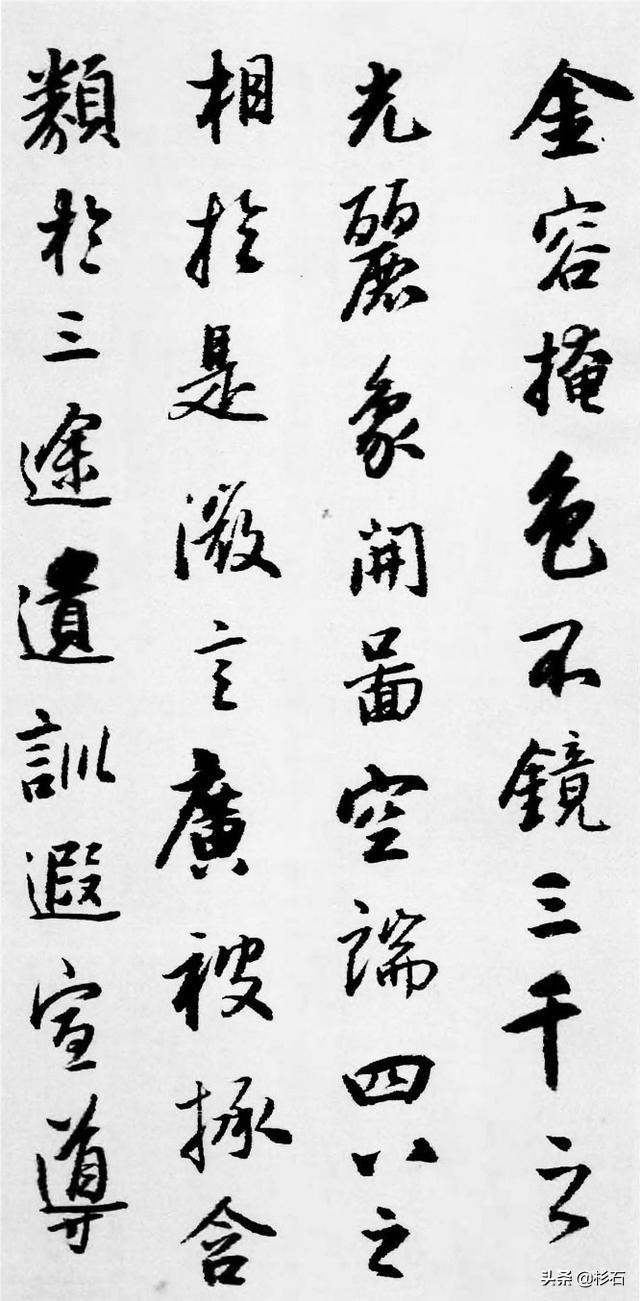 金容掩色不鏡三千之
光麗象開啚空端四八之
相扵是微言廣被拯含
類扵三途遺訓遐宣導
头条 @杉石